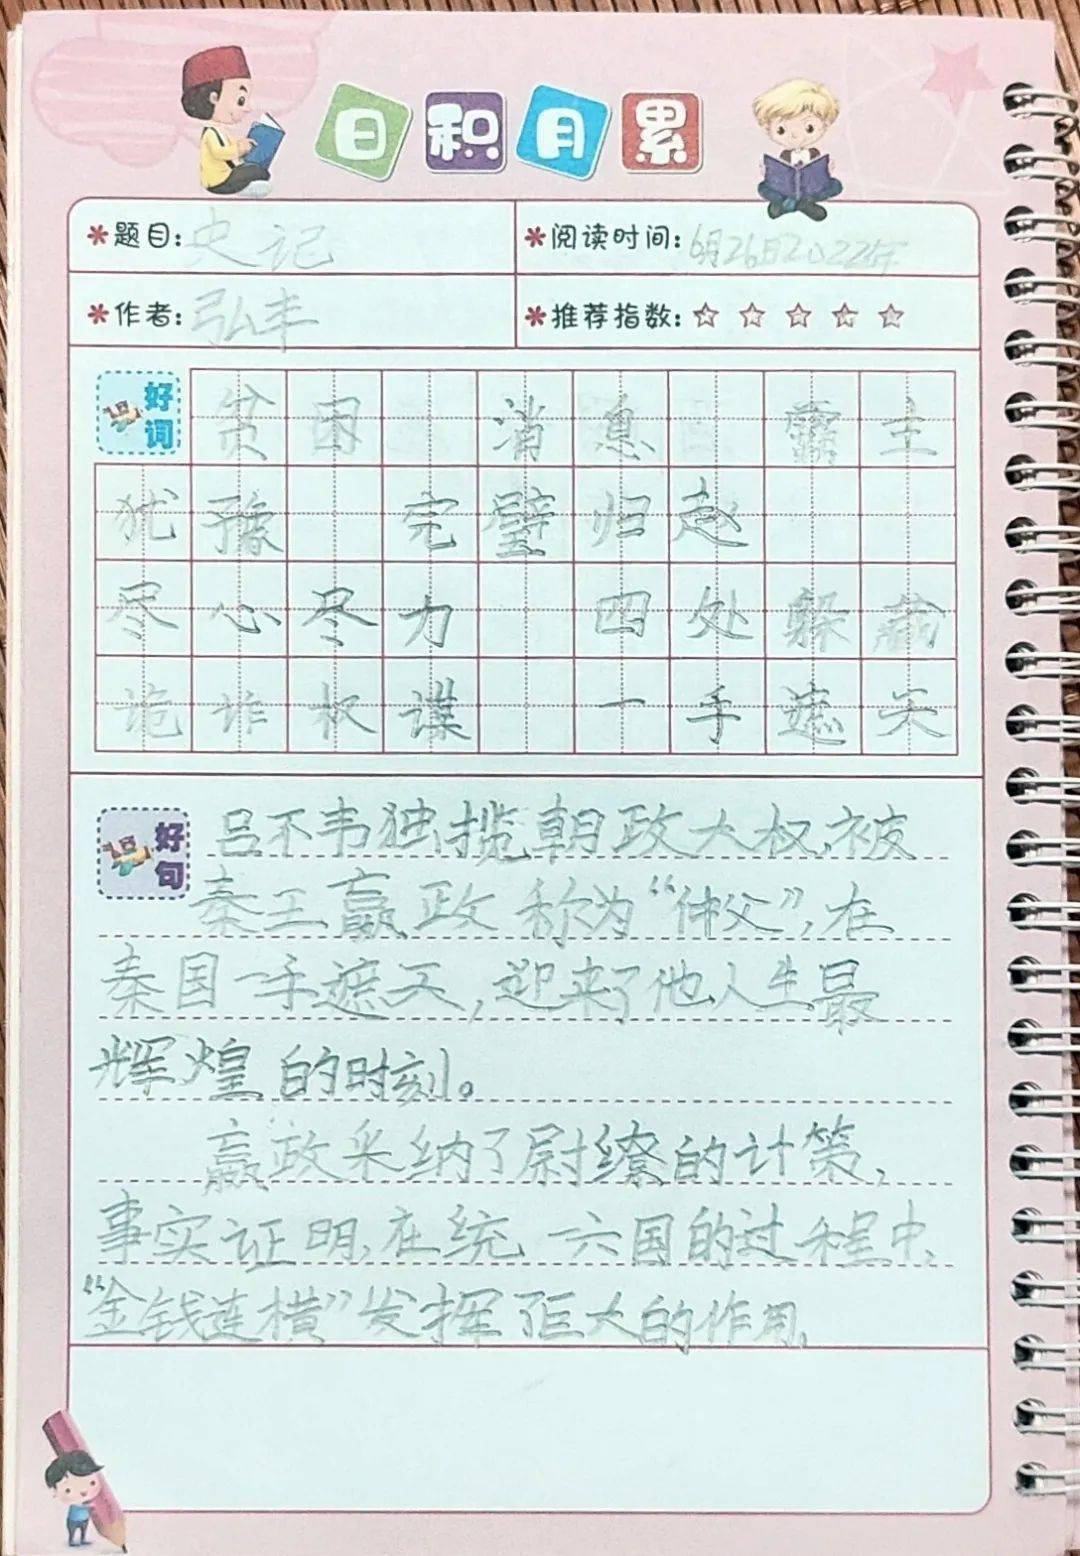 日积月累
题目：史记
阅读时间：6月26日2022年
作者：弘丰
推荐指数：☆☆☆☆☆
好词
贫困 消息 霸主
犹豫 完璧归赵
尽心尽力 四处躲藏
诡诈权谋 一手遮天
好句
吕不韦独揽朝政大权，被
秦王嬴政称为“仲父”，在
秦国一手遮天，迎来了他人生最
辉煌的时刻。
嬴政采纳了尉缭的计策，
事实证明，在统一六国的过程中，
“金钱连横”发挥了巨大的作用。